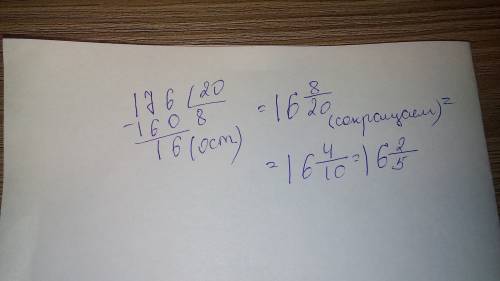 176 20
-160 8
16 (ост)
= 16 8/20 (сокращаем) =
= 16 4/10 = 16 2/5